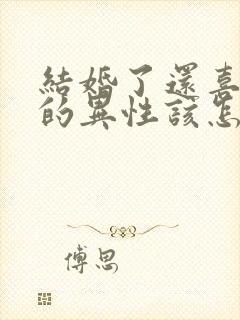 結婚了還喜
的異性該怎
傅思